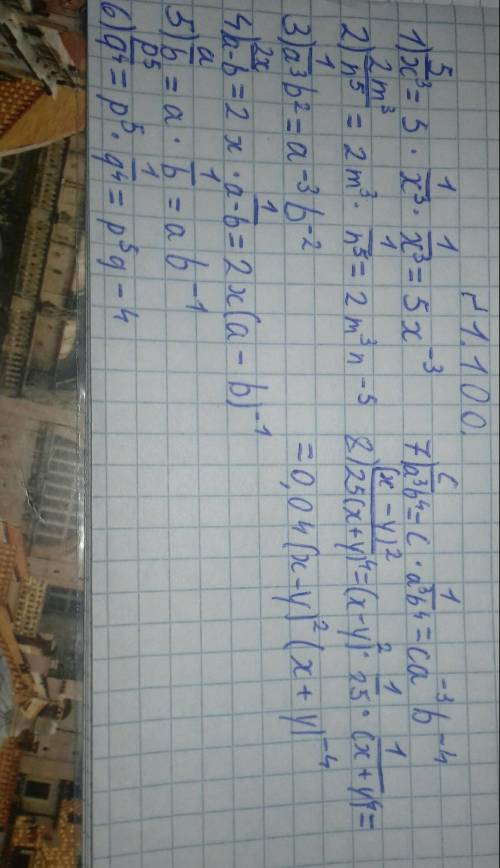 №1.100.
1) 5/x³ = 5 · 1/x³ · 1/x³ = 5x⁻³
2) 2m³/n⁵ = 2m³ · 1/n⁵ = 2m³n⁻⁵
3) 1/a³b² = a⁻³b⁻²
4) 2x/a-b = 2x · 1/a-b = 2x(a-b)⁻¹
5) a/b = a · 1/b = ab⁻¹
6) p⁵/q⁴ = p⁵ · 1/q⁴ = p⁵q⁻⁴
7) c/a³b⁴ = c · 1/a³b⁴ = ca⁻³b⁻⁴
8) (x-y)²/25(x+y)⁴ = (x-y)² · 1/25 · 1/(x+y)⁴ =
= 0,04(x-y)²(x+y)⁻⁴